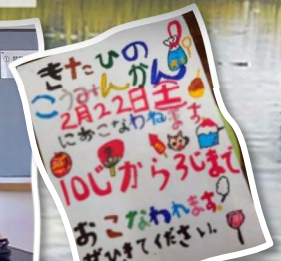 きたひの
こうみんかん
2月22日土
におこなわれます
10じから3じまで
おこなわれます。
ぜひきてください。